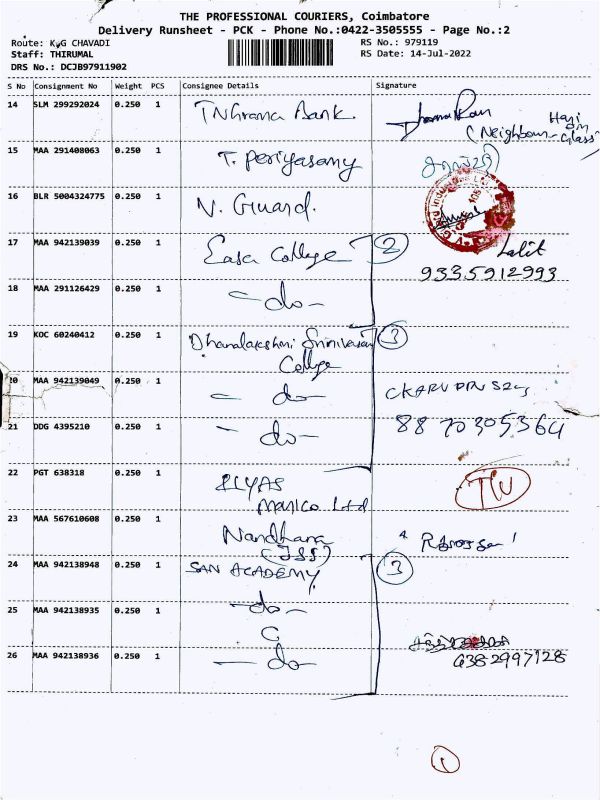 THE PROFESSIONAL COURIERS, Coimbatore
Delivery Runsheet - PCK - Phone No.:0422-3505555 - Page No.:2
Route: K.G CHAVADI
RS No.: 979119
Staff: THIRUMAL
RS Date: 14-Jul-2022
DRS No.: DCJB97911902
S No Consignment No Weight PCS Consignee Details Signature
14 SLM 299292024 0.250 1 TNGrama Bank
(Neighbour-Glass)
15 MAA 291408063 0.250 1 T. Periyasamy
16 BLR 5004324775 0.250 1 V. Guard.
17 MAA 942139039 0.250 1 Easa College 2
Lalit
9335912993
18 MAA 291126429 0.250 1 -do-
19 KOC 60240412 0.250 1 Dhanalakshmi Srinivasan 3
College
20 MAA 942139049 0.250 1 - do-
21 DDG 4395210 0.250 1 -do-
8870305364
22 PGT 638318 0.250 1 ELYAS
Manico Ltd
23 MAA 567610608 0.250 1 Nandhana
(JSS)
24 MAA 942138948 0.250 1 SAN ACADEMY 3
25 MAA 942138935 0.250 1 -do-
26 MAA 942138936 0.250 1 -do-
9382997128
1